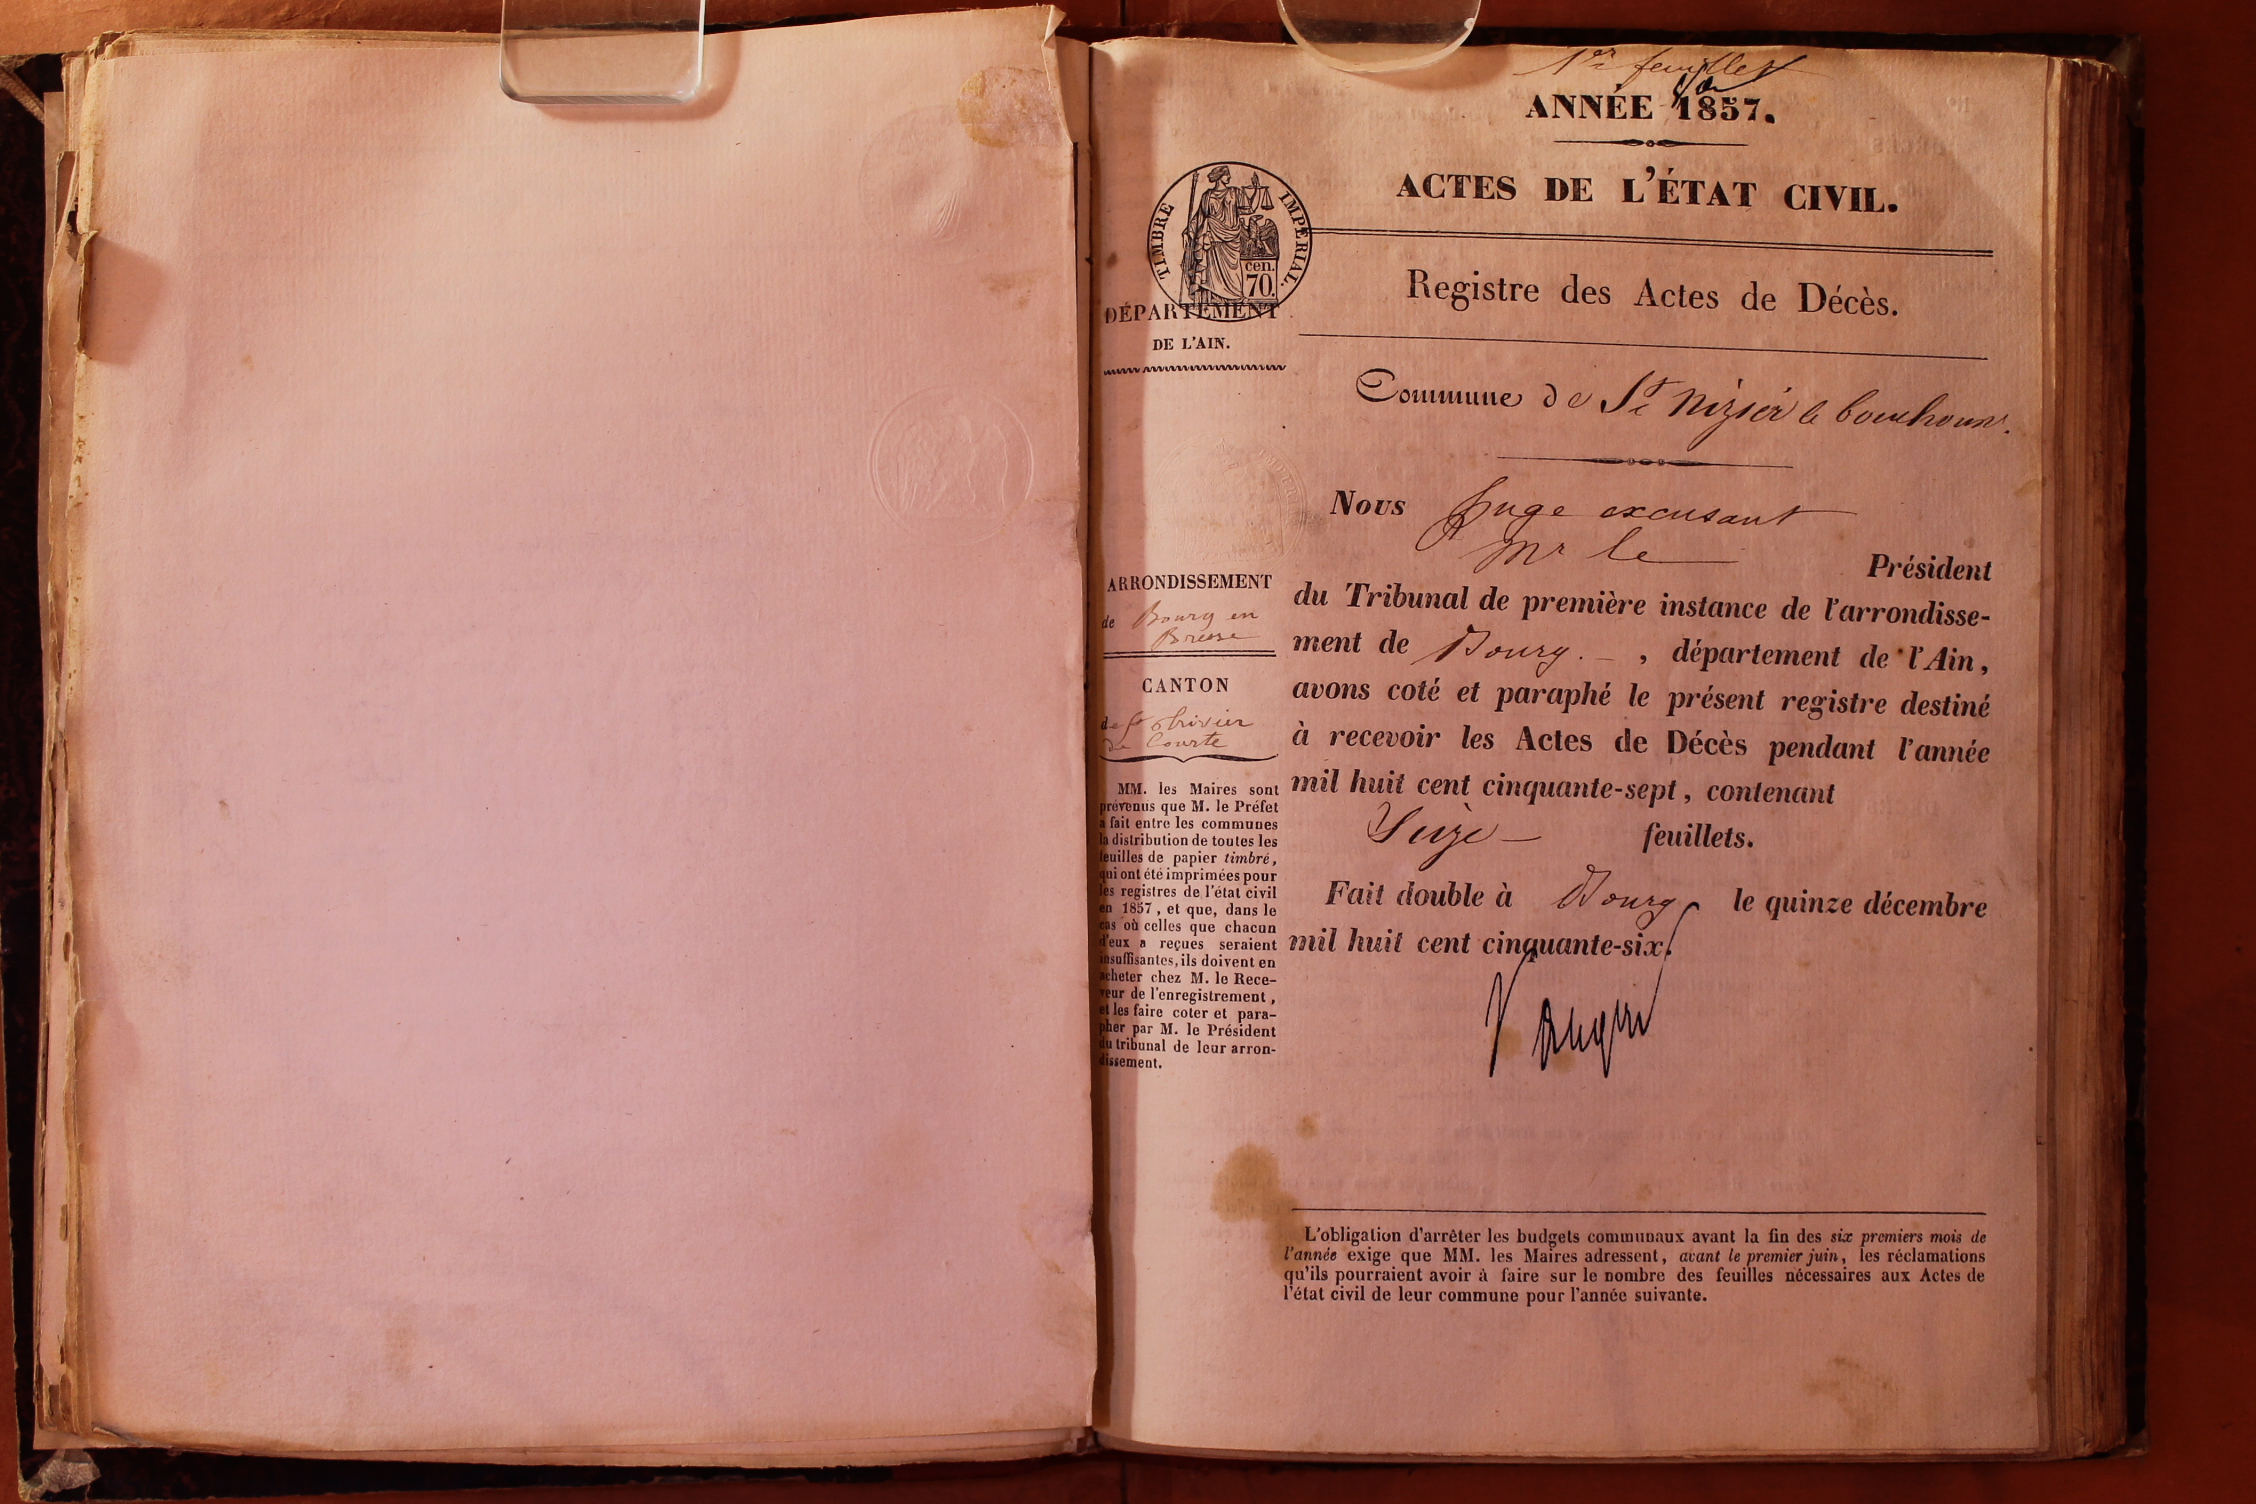 1er feuillet
ANNÉE 1857.
ACTES DE L'ÉTAT CIVIL.
TIMBRE IMPÉRIAL.
cen.
70.
DÉPARTEMENT
DE L'AIN.
Registre des Actes de Décès.
Commune de St Nizier le bouchoux.
Nous Juge excusant
Mr le
Président
du Tribunal de première instance de l'arrondisse-
ment de Bourg. , département de l'Ain,
avons coté et paraphé le présent registre destiné
à recevoir les Actes de Décès pendant l'année
mil huit cent cinquante-sept, contenant
Seize feuillets.
Fait double à Bourg le quinze décembre
mil huit cent cinquante-six.
ARRONDISSEMENT
de Bourg en
Bresse
CANTON
de St Trivier
De Courte
MM. les Maires sont
prévenus que M. le Préfet
a fait entre les communes
la distribution de toutes les
feuilles de papier timbré,
qui ont été imprimées pour
les registres de l'état civil
en 1857, et que, dans le
cas où celles que chacun
d'eux a reçues seraient
insuffisantes, ils doivent en
acheter chez M. le Rece-
veur de l'enregistrement,
et les faire coter et para-
pher par M. le Président
du tribunal de leur arron-
dissement.
L'obligation d'arrêter les budgets communaux avant la fin des six premiers mois de
l'année exige que MM. les Maires adressent, avant le premier juin, les réclamations
qu'ils pourraient avoir à faire sur le nombre des feuilles nécessaires aux Actes de
l'état civil de leur commune pour l'année suivante.